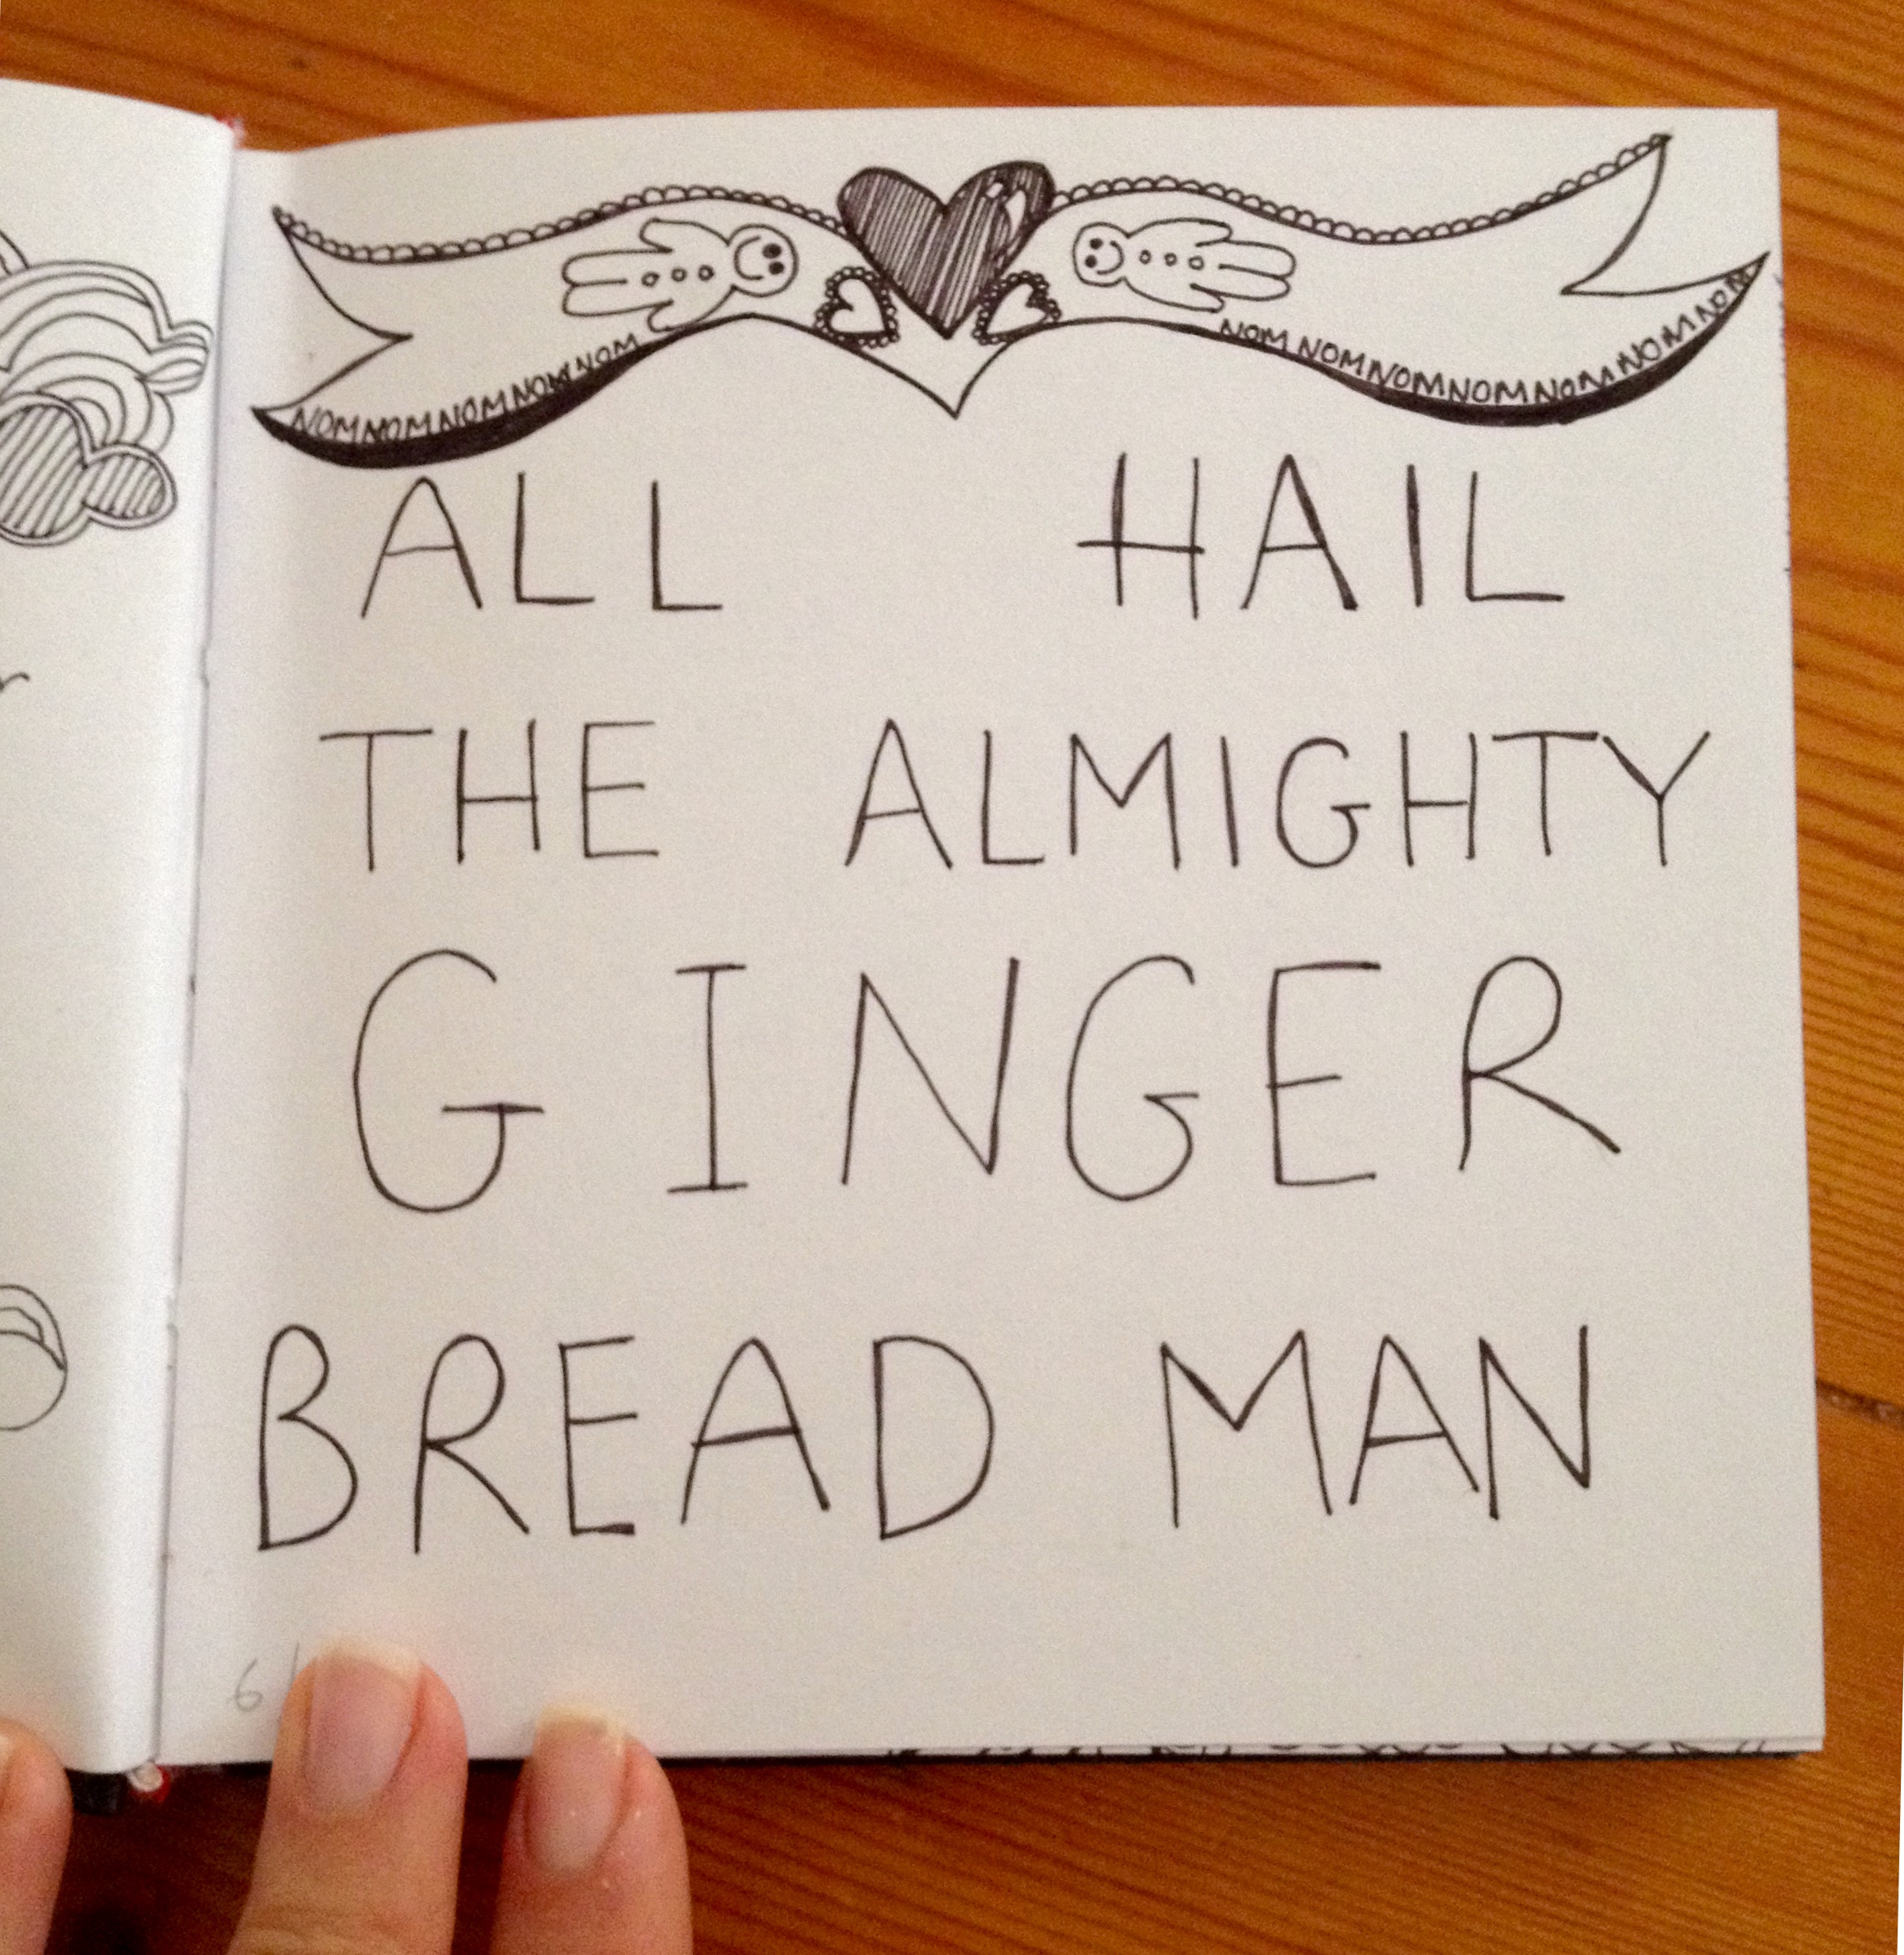 NOMNOMNOMNOMNOM
NOMNOMNOMNOMNOMNOMNOMNOM
ALL HAIL
THE ALMIGHTY
GINGER
BREAD MAN
6